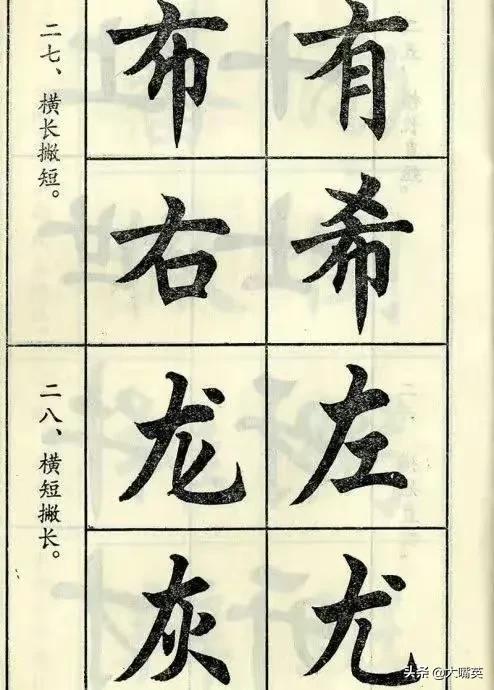 二七、横长撇短。
布有
右希
二八、横短撇长。
龙左
灰尤
头条 @大嘴英